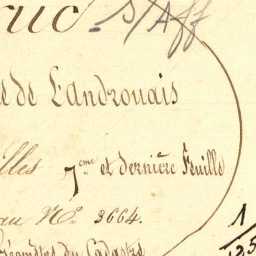 ruc S/Aff
e de Landrouais
lles 7eme et dernière Feuille
au No. 3664.
du Cadastre
1
125